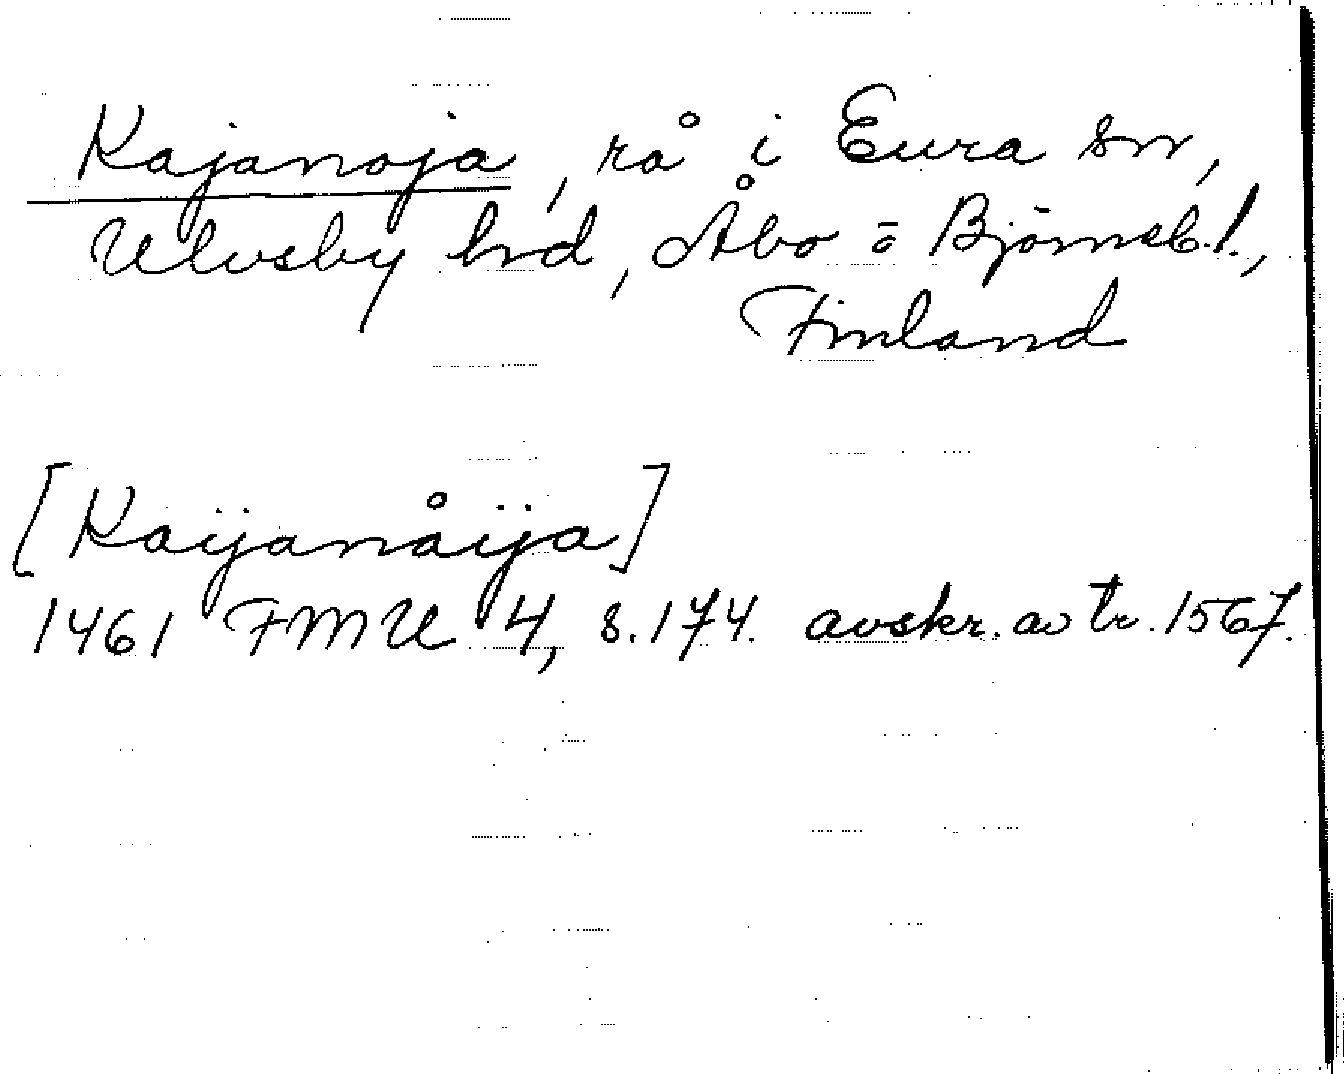 Kajanoja, rå i Eura sn,
Ulvsby hrd, Åbo o Björneb. l.,
Finland
[Kaijanåija]
1461 FMU 4, s. 174. avskr. av tr. 1567.